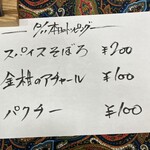 トッピング
スパイスそぼろ ¥200
金柑のアチャール ¥100
パクチー ¥100